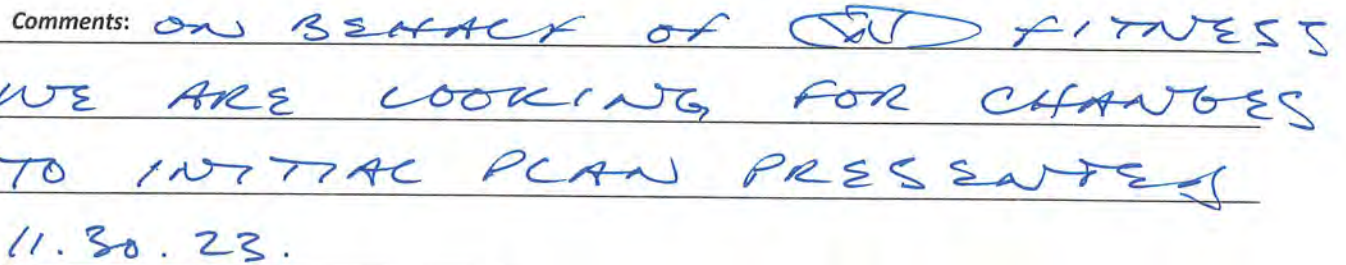 Comments: ON BEHALF OF FITNESS
WE ARE LOOKING FOR CHANGES
TO INITIAL PLAN PRESENTED
11.30.23.